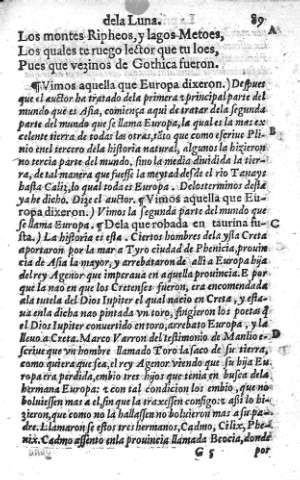 dela Luna. 89
Los montes Ripheos, y lagos Metoes, A
Los quales te ruego lector que tu loes,
Pues que vezinos de Gothica fueron.
¶Vimos aquella que Europa dixeron.) Despues
que el auctor ha tratado dela primera z principal parte del
mundo que es Asia, comiença aqui de tratar dela segunda
parte del mundo que se llama Europa, la qual es la mas ex
celente tierra de todas las otras, tãto que como escriue Pli- B
nio enel tercero dela historia natural, algunos la hizieron
no tercia parte del mundo, sino la media diuidida la tier-
ra, de tal manera que fuesse la meytad desde el rio Tanays
hasta Caliz, lo qual toda es Europa. Delos terminos desta
ya he dicho. Dize el auctor. ¶Vimos aquella que Eu-
ropa dixeron.) Vimos la segunda parte del mundo que
se llama Europa. ¶Dela que robada en taurina fu- C
sta,) La historia es esta. Ciertos hombres dela ysla Creta
aportaron por la mar a Tyro ciudad de Phenicia, prouin-
cia de Asia la mayor, y arrebataron de alli a Europa hija
del rey Agenor que imperaua en aquella prouincia. E por
que la nao en que los Cretenses fueron, era encomendada
ala tutela del Dios Iupiter el qual nacio en Creta, y esta-
ua enla dicha nao pintada vn toro, fingieron los poetas q̃
el Dios Iupiter conuertido en toro, arrebato Europa, y la D
lleuo a Creta. Marco Varron del testimonio de Manlio e-
scriue que vn hombre llamado Toro la saco de su tierra,
como quiera que sea, el rey Agenor viendo que su hija Eu
ropa era perdida, embio tres hijos que tenia en busca dela
hermana Europa: z con tal condicion los embio, que no
boluiessen mas a el, sin que la traxessen consigo: z asi lo hi-
zieron, que como no la hallassen no boluieron mas a su pa-
dre. Llamaron se estos tres hermanos, Cadmo, Cilix, Phe-
nix. Cadmo assento enla prouincia llamada Beocia, donde
G 5 por